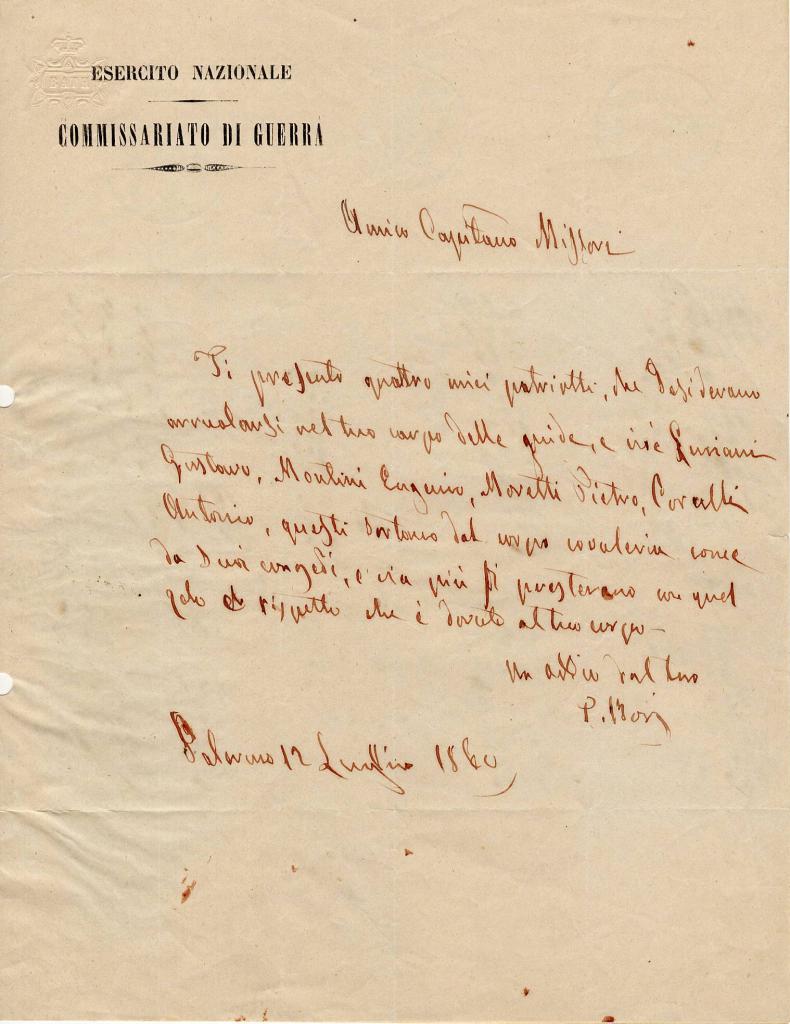 BATH
ESERCITO NAZIONALE
COMMISSARIATO DI GUERRA
Amico Capitano Missori
Ti presento quattro miei patriotti, che desiderano
arruolarsi nel tuo corpo delle guide, e cioè Luciani
Gustavo, Montini Eugenio, Moretti Pietro, Corelli
Antonio, questi sortono dal corpo cavaleria come
da suoi congedi, e via più si presterano con quel
zelo e rispetto che è dovuto al tuo corpo —
un addio dal tuo
P. Bovi
Palermo 12 Luglio 1860